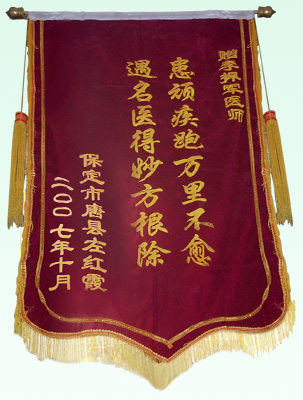 赠李振军医师
患顽疾跑万里不愈
遇名医得妙方根除
保定市唐县左红霞
二〇〇七年十月